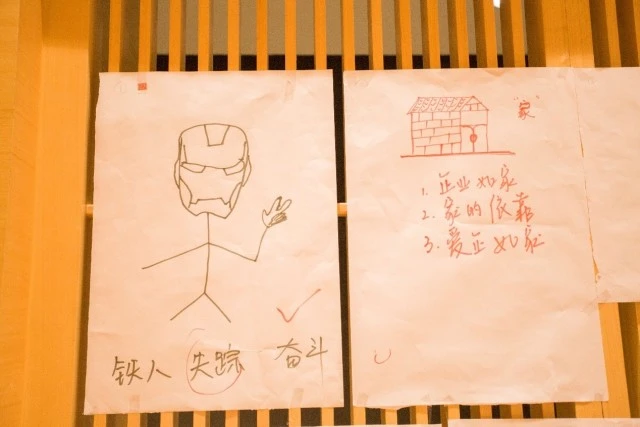 铁人 失踪 奋斗
"家"
1. 企业如家
2. 家的依靠
3. 爱企如家